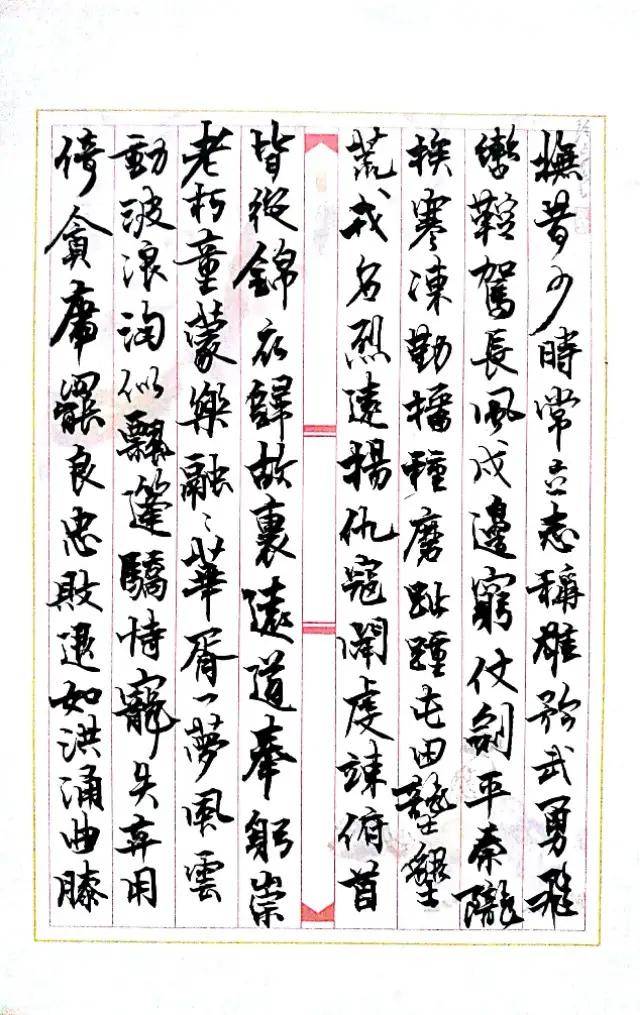 撫昔少時常立志稱雄矜武勇飛
轡鞚駕長風戍邊窮仗劍平秦隴
挨寒凍勤播種磨趾踵屯田壟墾
荒我名烈遠揚仇寇聞虔竦俯首
皆從錦衣歸故裏遠道奉躬崇
老朽童蒙樂融〻華胥一夢風雲
動波浪洶似飄篷驕恃寵失弃用
倚貪庸罷良忠敗退如洪涌曲膝